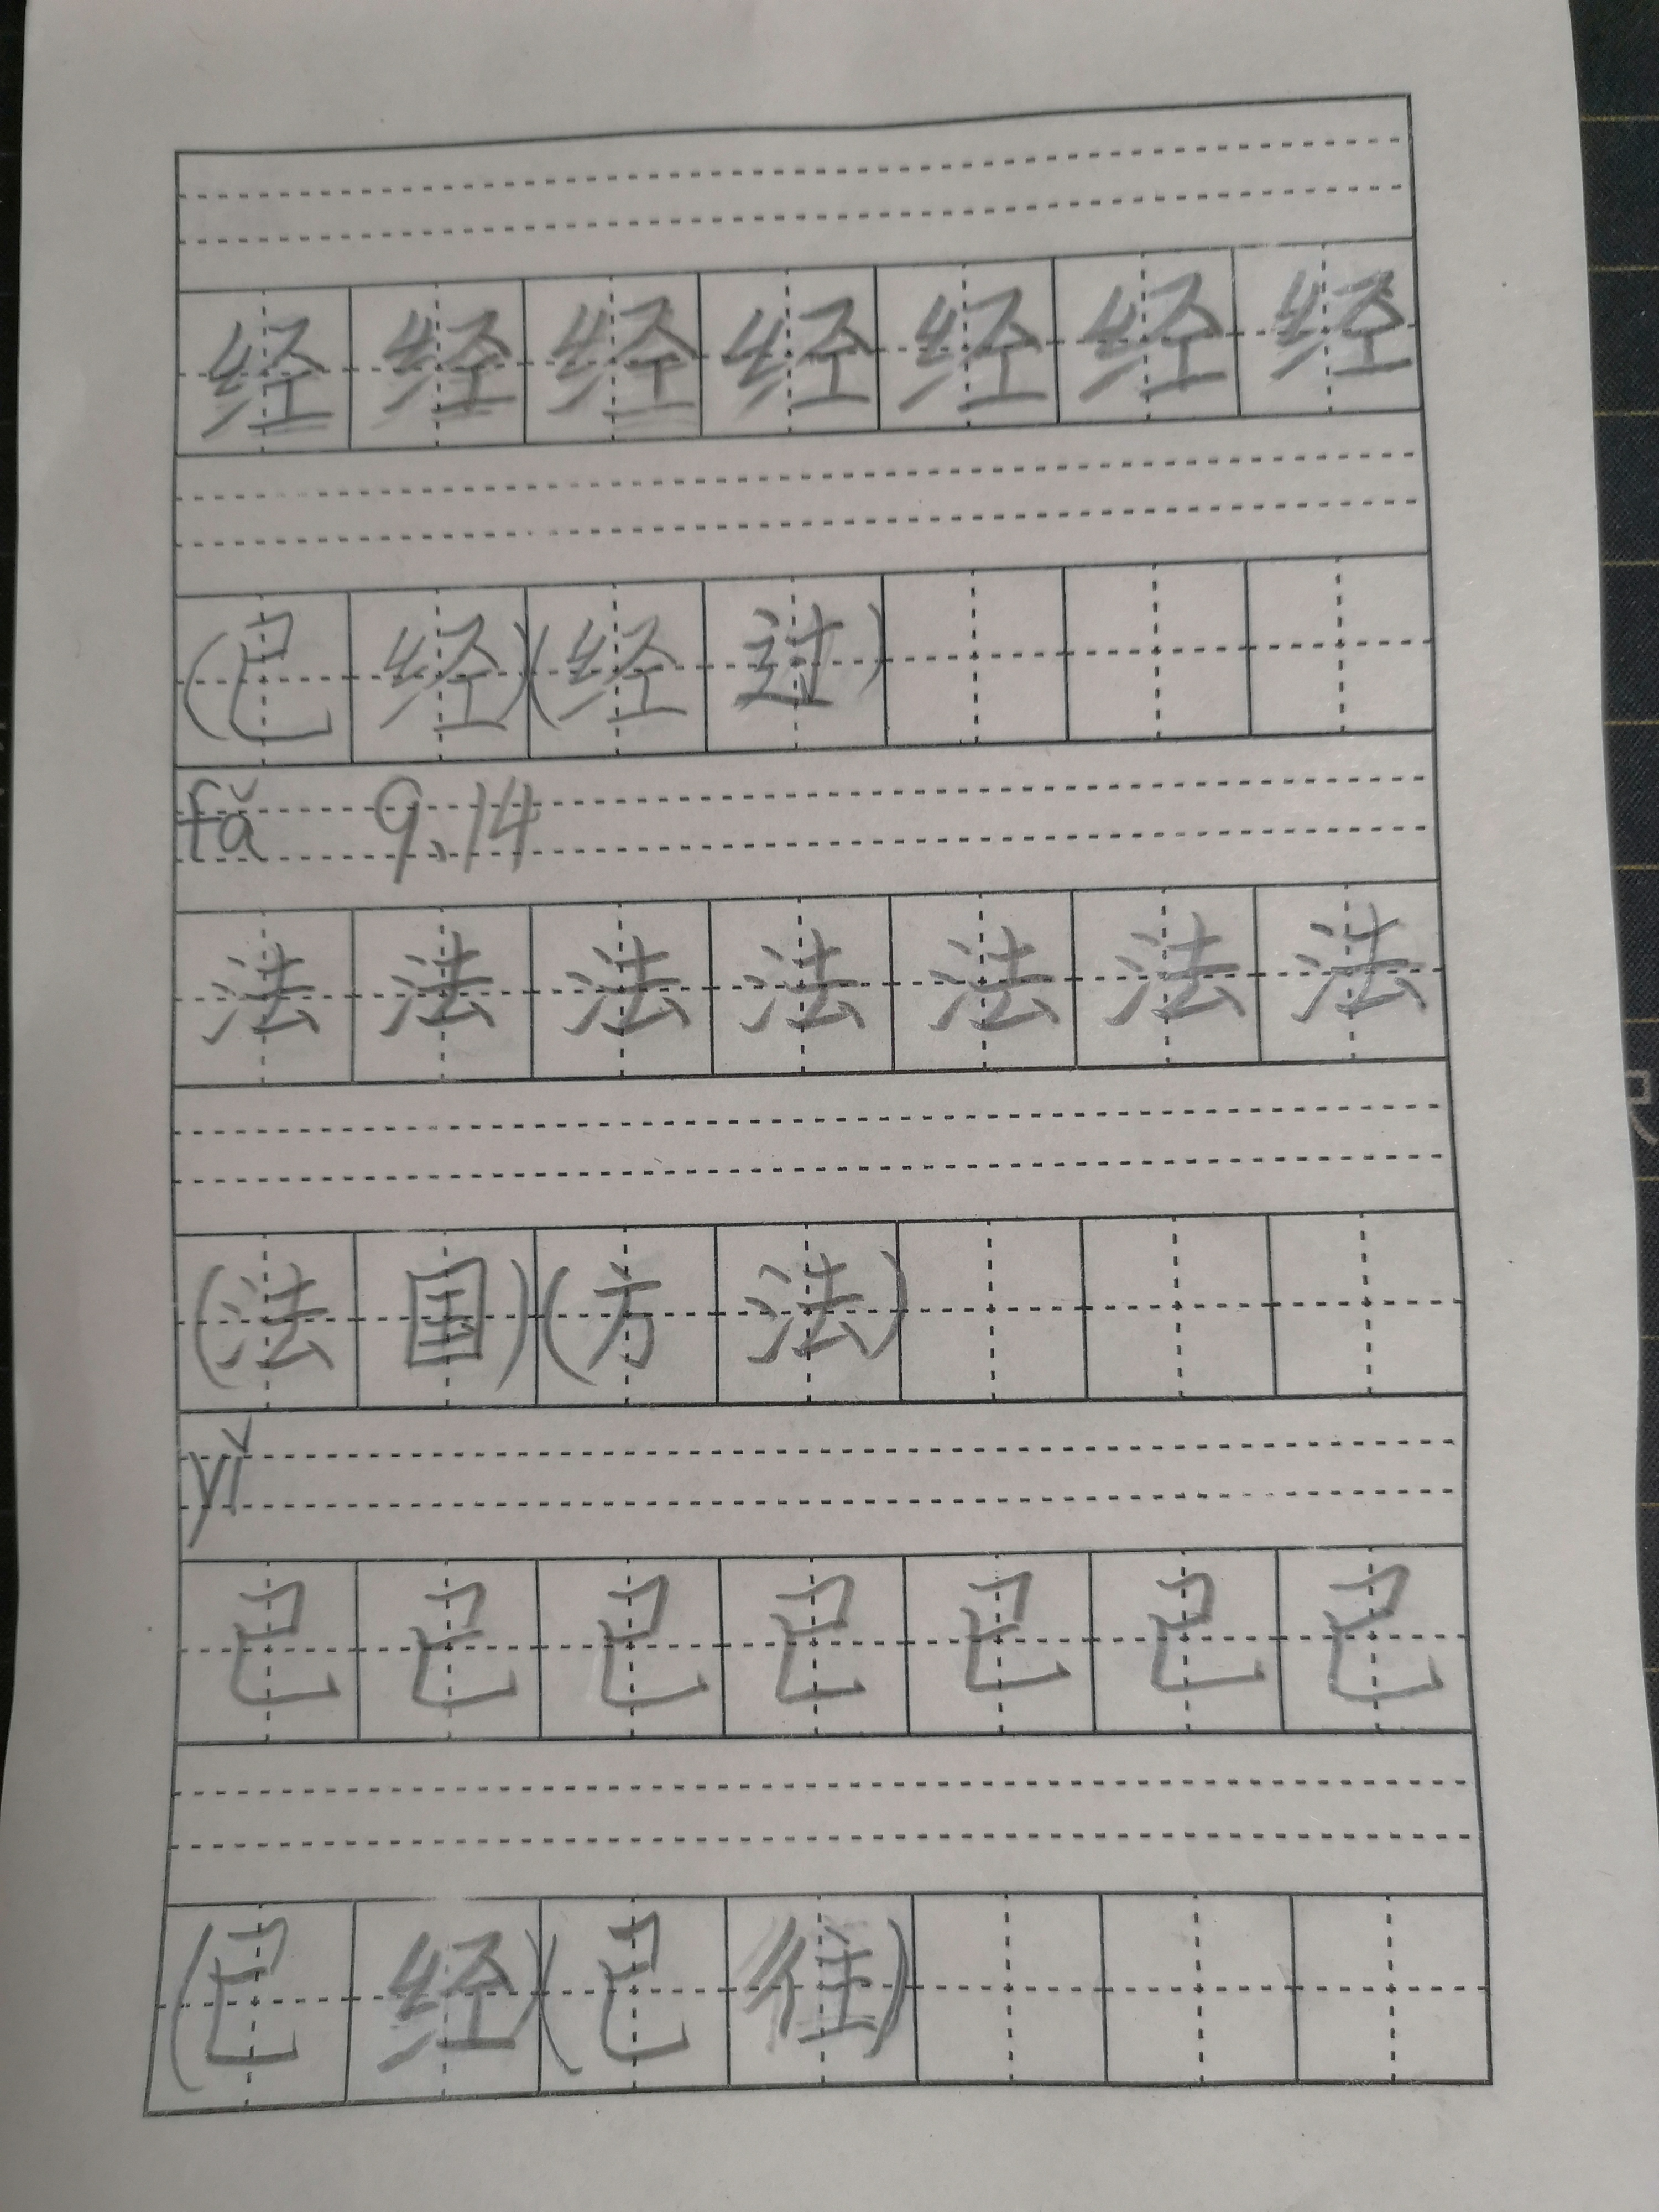 经经经经经经经
(已经)(经过)
fǎ 9.14
法法法法法法法
(法国)(方法)
yǐ
已已已已已已已
(已经)(已往)